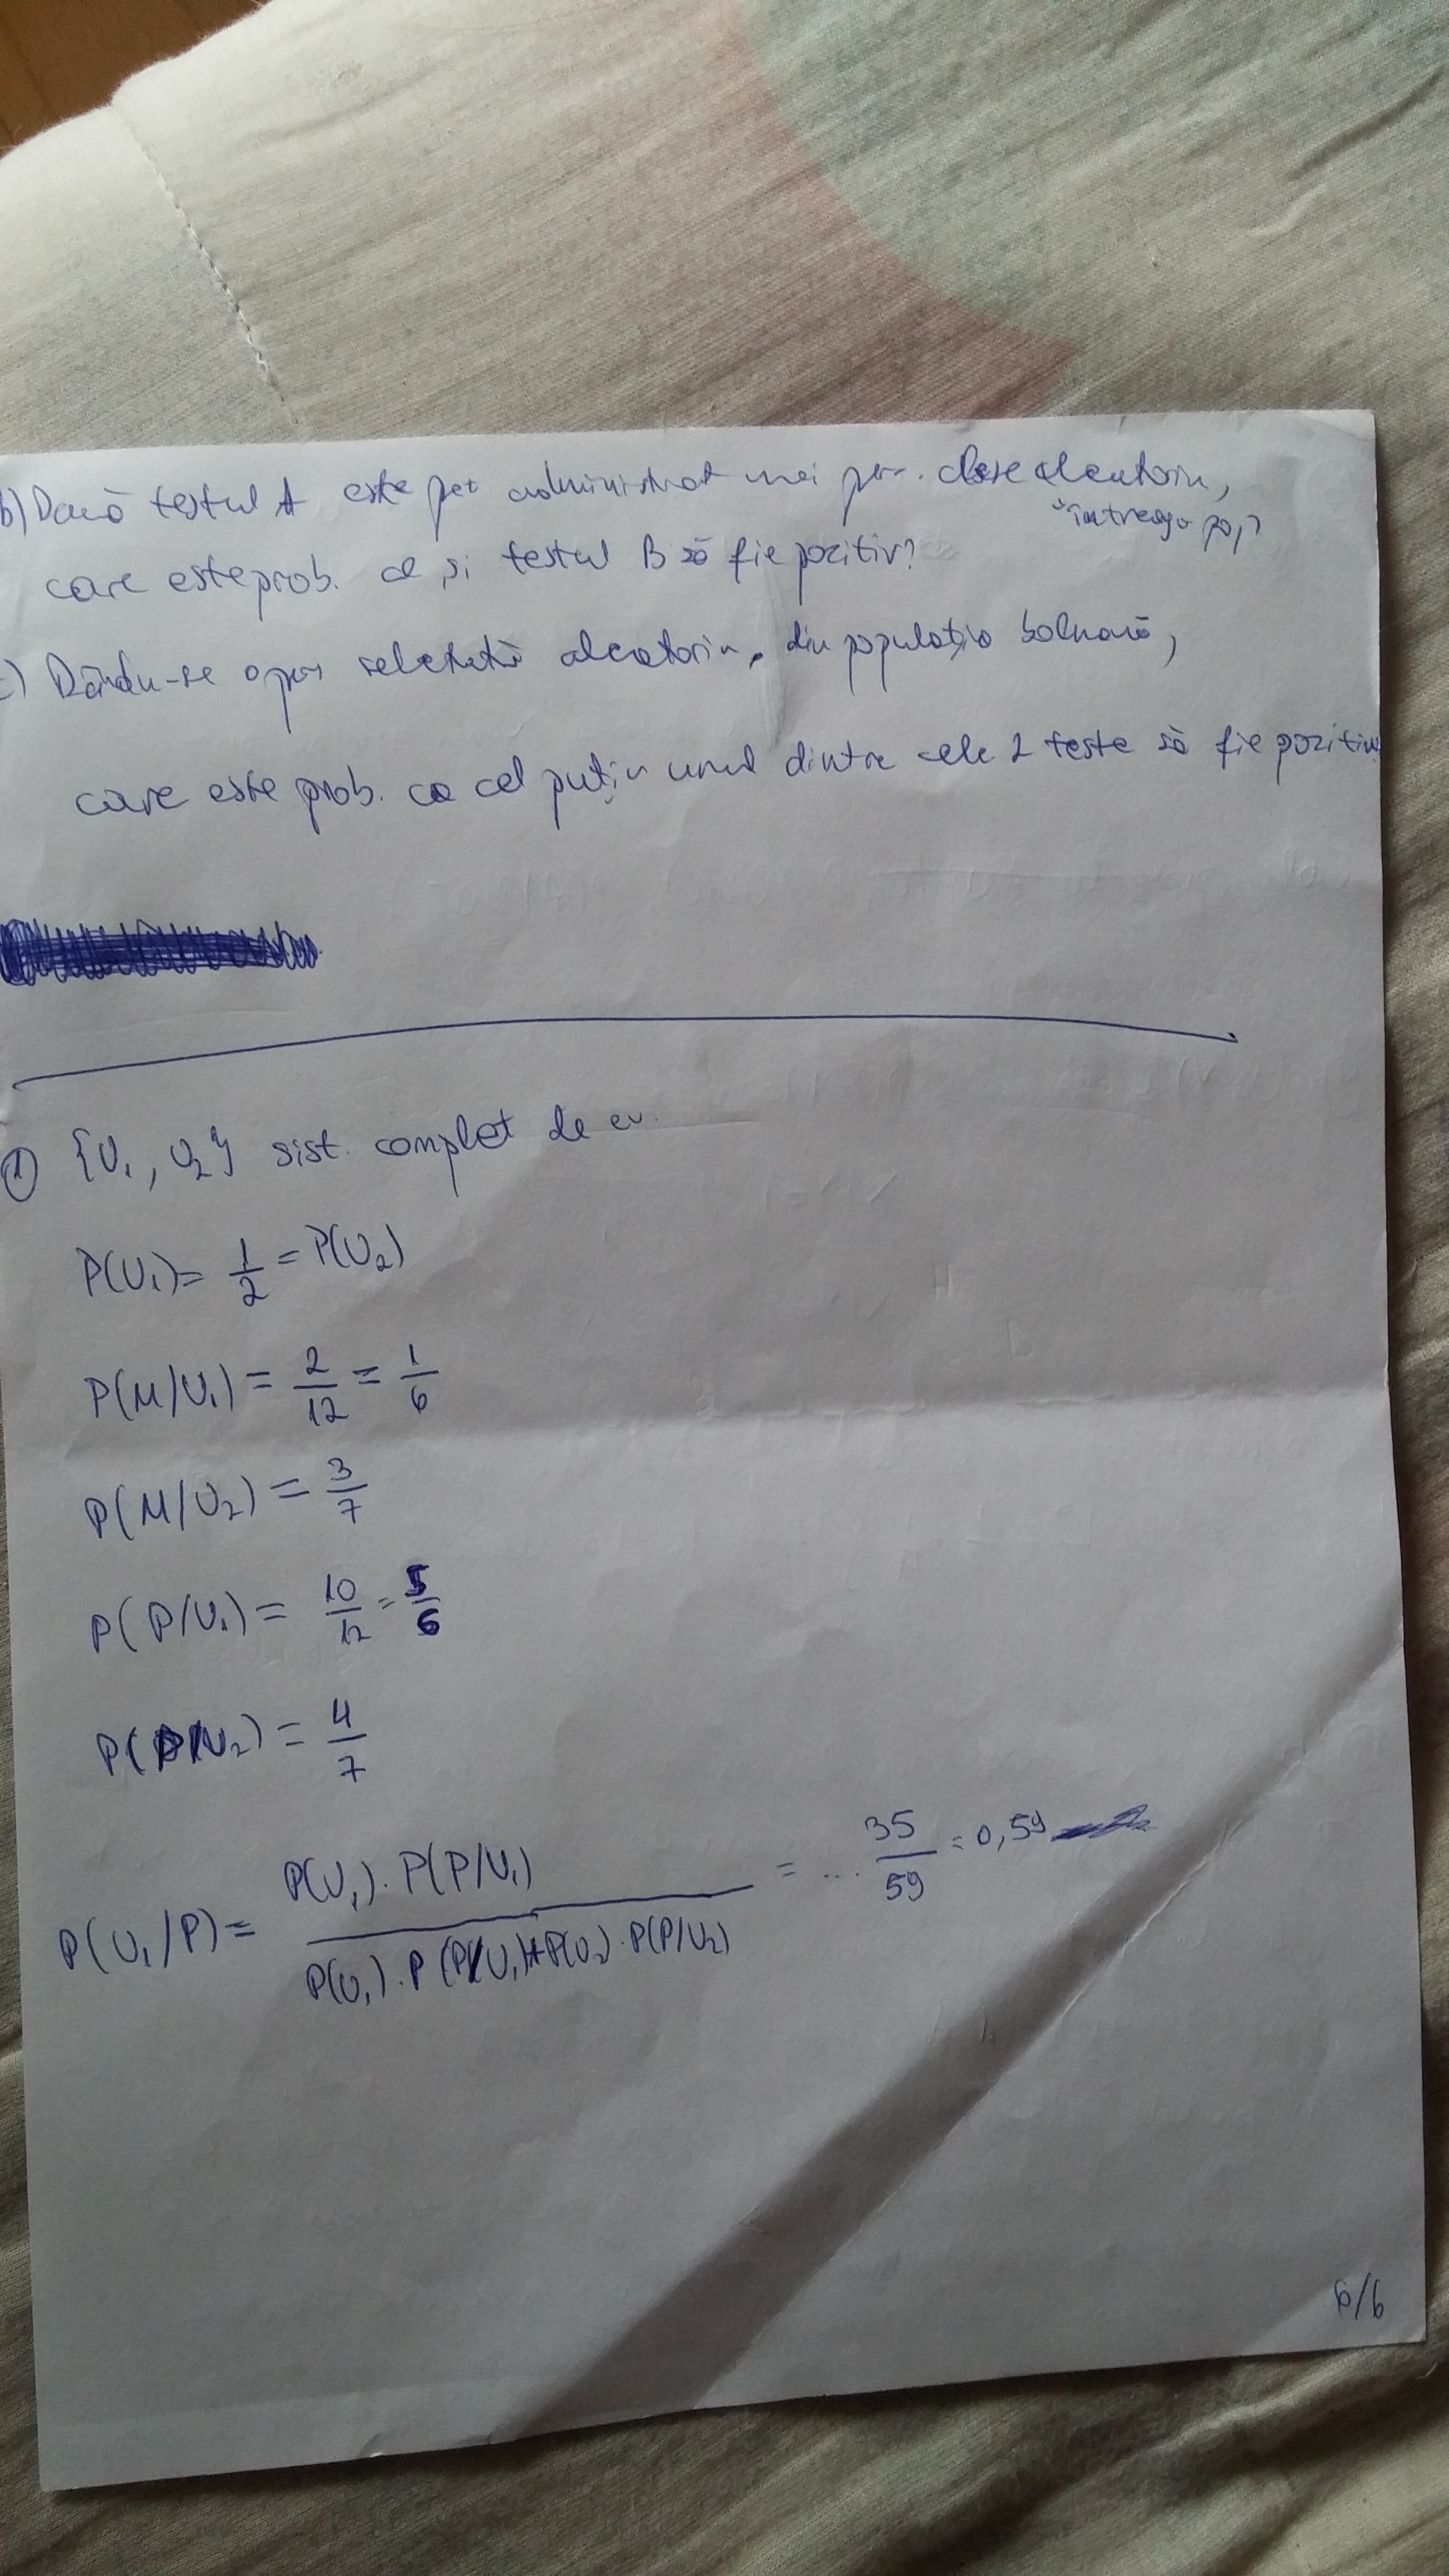 b) Dacă testul A este administrat unei per. alese aleatoriu,
întreaga pop,
care este prob. ca și testul B să fie pozitiv?
c) Dându-se o per selectată aleatoriu, din populația bolnavă,
care este prob. ca cel puțin unul dintre cele 2 teste să fie pozitiv
① {U₁, U₂} sist. complet de ev.
P(U₁) = 1/2 = P(U₂)
P(M/U₁) = 2/12 = 1/6
P(M/U₂) = 3/7
P(P/U₁) = 10/12 = 5/6
P(P/U₂) = 4/7
P(U₁/P) = P(U₁)·P(P/U₁) / P(U₁)·P(P/U₁)+P(U₂)·P(P/U₂) = ... 35/59 = 0,59